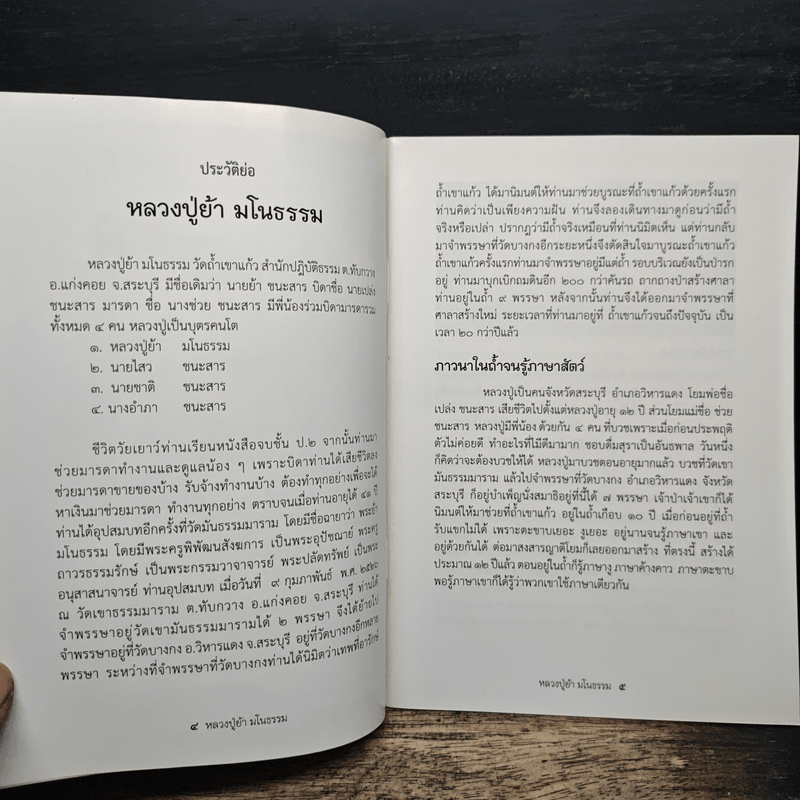 ประวัติย่อ
หลวงปู่ย้า มโนธรรม
หลวงปู่ย้า มโนธรรม วัดถ้ำเขาแก้ว สำนักปฏิบัติธรรม ต.ทับกวาง
อ.แก่งคอย จ.สระบุรี มีชื่อเดิมว่า นายย้า ชนะสาร บิดาชื่อ นายเปล่ง
ชนะสาร มารดา ชื่อ นางช่วย ชนะสาร มีพี่น้องร่วมบิดามารดารวม
ทั้งหมด ๔ คน หลวงปู่เป็นบุตรคนโต
๑. หลวงปู่ย้า มโนธรรม
๒. นายไสว ชนะสาร
๓. นายชาติ ชนะสาร
๔. นางอำภา ชนะสาร
ชีวิตวัยเยาว์ท่านเรียนหนังสือจบชั้น ป.๒ จากนั้นท่านมา
ช่วยมารดาทำงานและดูแลน้อง ๆ เพราะบิดาท่านได้เสียชีวิตลง
ช่วยมารดาขายของบ้าง รับจ้างทำงานบ้าง ต้องทำทุกอย่างเพื่อจะได้
หาเงินมาช่วยมารดา ทำงานทุกอย่าง ตราบจนเมื่อท่านอายุได้ ๔๑ ปี
ท่านได้อุปสมบทอีกครั้งที่วัดมันธรรมมาราม โดยมีชื่อฉายาว่า พระย้า
มโนธรรม โดยมีพระครูพิพัฒนสังฆการ เป็นพระอุปัชฌาย์ พระครู
ถาวรธรรมรักษ์ เป็นพระกรรมวาจาจารย์ พระปลัดทรัพย์ เป็นพระ
อนุสาสนาจารย์ ท่านอุปสมบท เมื่อวันที่ ๙ กุมภาพันธ์ พ.ศ. ๒๕๒๖
ณ วัดเขาธรรมมาราม ต.ทับกวาง อ.แก่งคอย จ.สระบุรี ท่านได้
จำพรรษาอยู่วัดเขามันธรรมมารามได้ ๒ พรรษา จึงได้ย้ายไป
จำพรรษาอยู่ที่วัดบางกง อ.วิหารแดง จ.สระบุรี อยู่ที่วัดบางกงอีกหลาย
พรรษา ระหว่างที่จำพรรษาที่วัดบางกงท่านได้นิมิตว่าเทพที่อารักษ์
๔ หลวงปู่ย้า มโนธรรม
ถ้ำเขาแก้ว ได้มานิมนต์ให้ท่านมาช่วยบูรณะที่ถ้ำเขาแก้วด้วยครั้งแรก
ท่านคิดว่าเป็นเพียงความฝัน ท่านจึงลองเดินทางมาดูก่อนว่ามีถ้ำ
จริงหรือเปล่า ปรากฏว่ามีถ้ำจริงเหมือนที่ท่านนิมิตเห็น แต่ท่านกลับ
มาจำพรรษาที่วัดบางกงอีกระยะหนึ่งจึงตัดสินใจมาบูรณะถ้ำเขาแก้ว
ถ้ำเขาแก้วครั้งแรกท่านมาจำพรรษาอยู่มีแต่ถ้ำ รอบบริเวณยังเป็นป่ารก
อยู่ ท่านมาบุกเบิกถมดินอีก ๒๐๐ กว่าคันรถ ถากถางป่าสร้างศาลา
ท่านอยู่ในถ้ำ ๙ พรรษา หลังจากนั้นท่านจึงได้ออกมาจำพรรษาที่
ศาลาสร้างใหม่ ระยะเวลาที่ท่านมาอยู่ที่ ถ้ำเขาแก้วจนถึงปัจจุบัน เป็น
เวลา ๒๐ กว่าปีแล้ว
ภาวนาในถ้ำจนรู้ภาษาสัตว์
หลวงปู่เป็นคนจังหวัดสระบุรี อำเภอวิหารแดง โยมพ่อชื่อ
เปล่ง ชนะสาร เสียชีวิตไปตั้งแต่หลวงปู่อายุ ๑๒ ปี ส่วนโยมแม่ชื่อ ช่วย
ชนะสาร หลวงปู่มีพี่น้อง ด้วยกัน ๔ คน ที่บวชเพราะเมื่อก่อนประพฤติ
ตัวไม่ค่อยดี ทำอะไรที่ไม่ดีมามาก ชอบดื่มสุราเป็นอันธพาล วันหนึ่ง
ก็คิดว่าจะต้องบวชให้ได้ หลวงปู่มาบวชตอนอายุมากแล้ว บวชที่วัดเขา
มันธรรมมาราม แล้วไปจำพรรษาที่วัดบางกง อำเภอวิหารแดง จังหวัด
สระบุรี ก็อยู่บำเพ็ญนั่งสมาธิอยู่ที่นี้ได้ ๗ พรรษา เจ้าป่าเจ้าเขาก็ได้
นิมนต์ให้มาช่วยที่ถ้ำเขาแก้ว อยู่ในถ้ำเกือบ ๑๐ ปี เมื่อก่อนอยู่ที่ถ้ำ
รับแขกไม่ได้ เพราะตะขาบเยอะ งูเยอะ อยู่นานจนรู้ภาษาเขา และ
อยู่ด้วยกันได้ ต่อมาสงสารญาติโยมก็เลยออกมาสร้าง ที่ตรงนี้ สร้างได้
ประมาณ ๑๒ ปี แล้ว ตอนอยู่ในถ้ำก็รู้ภาษางู ภาษาค้างคาว ภาษาตะขาบ
พอรู้ภาษาเขาก็ได้รู้ว่าพวกเขาใช้ภาษาเดียวกัน
หลวงปู่ย้า มโนธรรม ๕